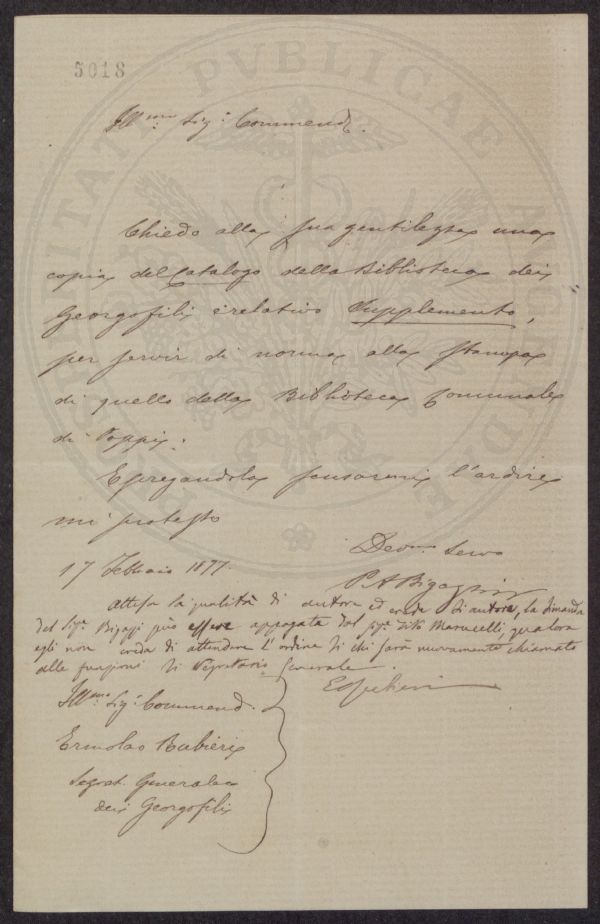 5018
Ill.mo Sig.r Commend.
Chiedo alla sua gentilezza una
copia del Catalogo della Biblioteca dei
Georgofili e relativo Supplemento,
per servir di norma alla stampa
di quello della Biblioteca Comunale
di Poppi.
E pregandola scusarmi l'ardire
mi protesto
17 Febbraio 1877.
Dev.mo Servo
Attesa la qualità di autore ed erede di autore, la dimanda
del Sig.r Bigazzi può essere appagata dal Sig.r Tito Marucelli, qualora
egli non creda di attendere l'ordine di chi sarà nuovamente chiamato
alle funzioni di Segretario Generale.
Ill.mo Sig.r Commend.
Ermolao Rubieri
Segret. Generale
dei Georgofili